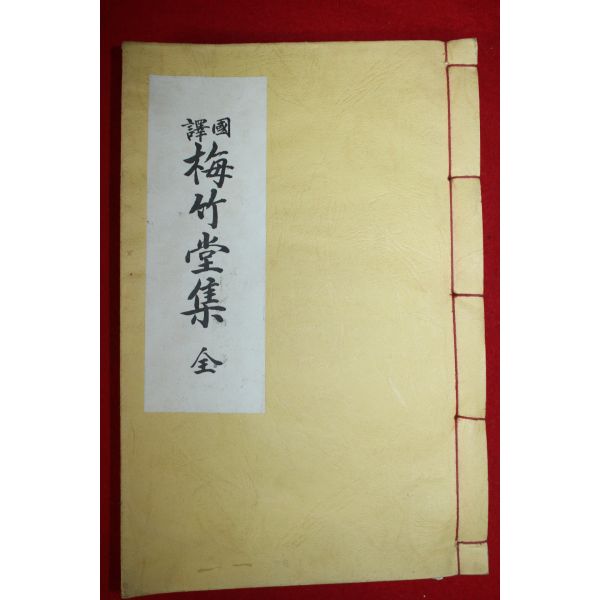 國譯
梅竹堂集
全